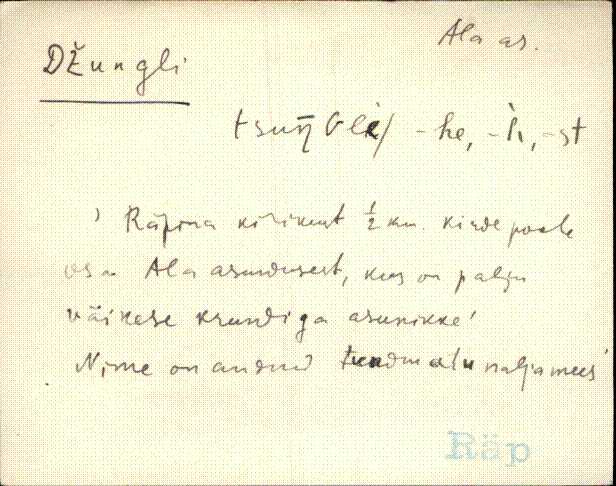 Ala as.
Džungli
tsuŋGli/ -he, -h, -st
' Räpina kirikust ½ km. kirde poole
osa Ala asundusest, kus on palju
väikese krundiga asunikke'
Nime on andnud tundmatu naljamees'
Räp